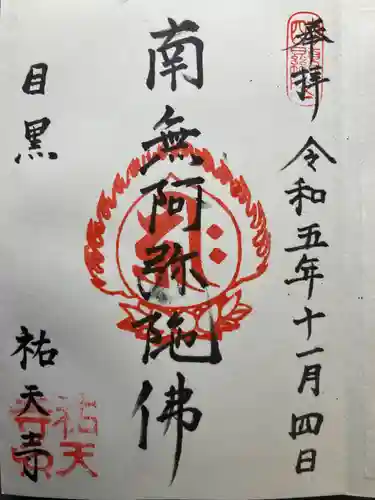 奉拝 令和五年十一月四日
南無阿弥陀佛
目黒 祐天寺